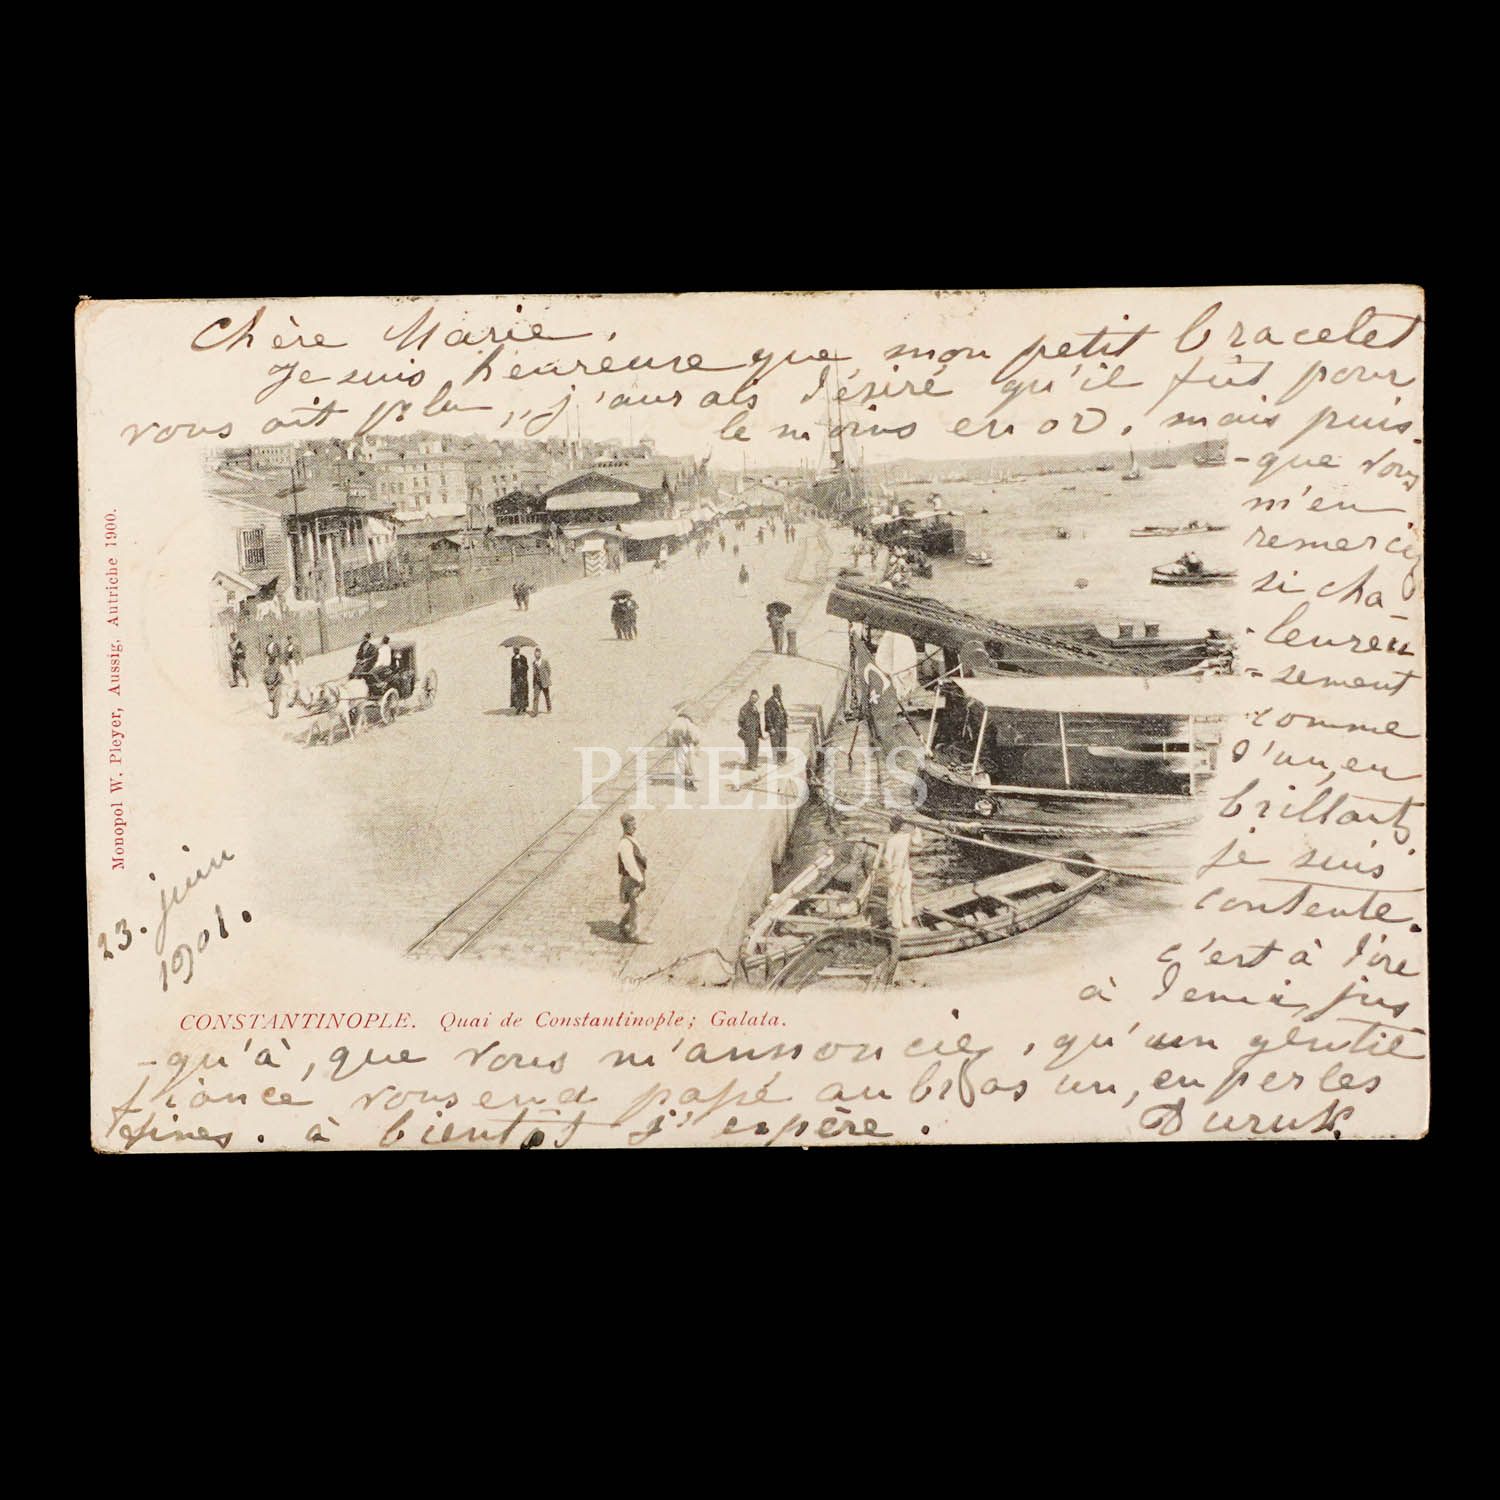 Chère Marie,
Je suis heureuse que mon petit bracelet
vous ait plu, j'aurais désiré qu'il fût pour
le moins en or, mais puis-
-que vous
m'en
remerciez
si cha-
leureu
-sement
comme
d'un, en
brillants,
je suis
contente.
c'est à dire
à demi, jus
-qu'à, que vous m'annonciez, qu'un gentil
fiancé vous en a passé au bras un, en perles
fines. à bientôt j'espère.
23. juin
1901.
CONSTANTINOPLE. Quai de Constantinople; Galata.
Monopol W. Pleyer, Aussig, Autriche 1900.
PHEBUS